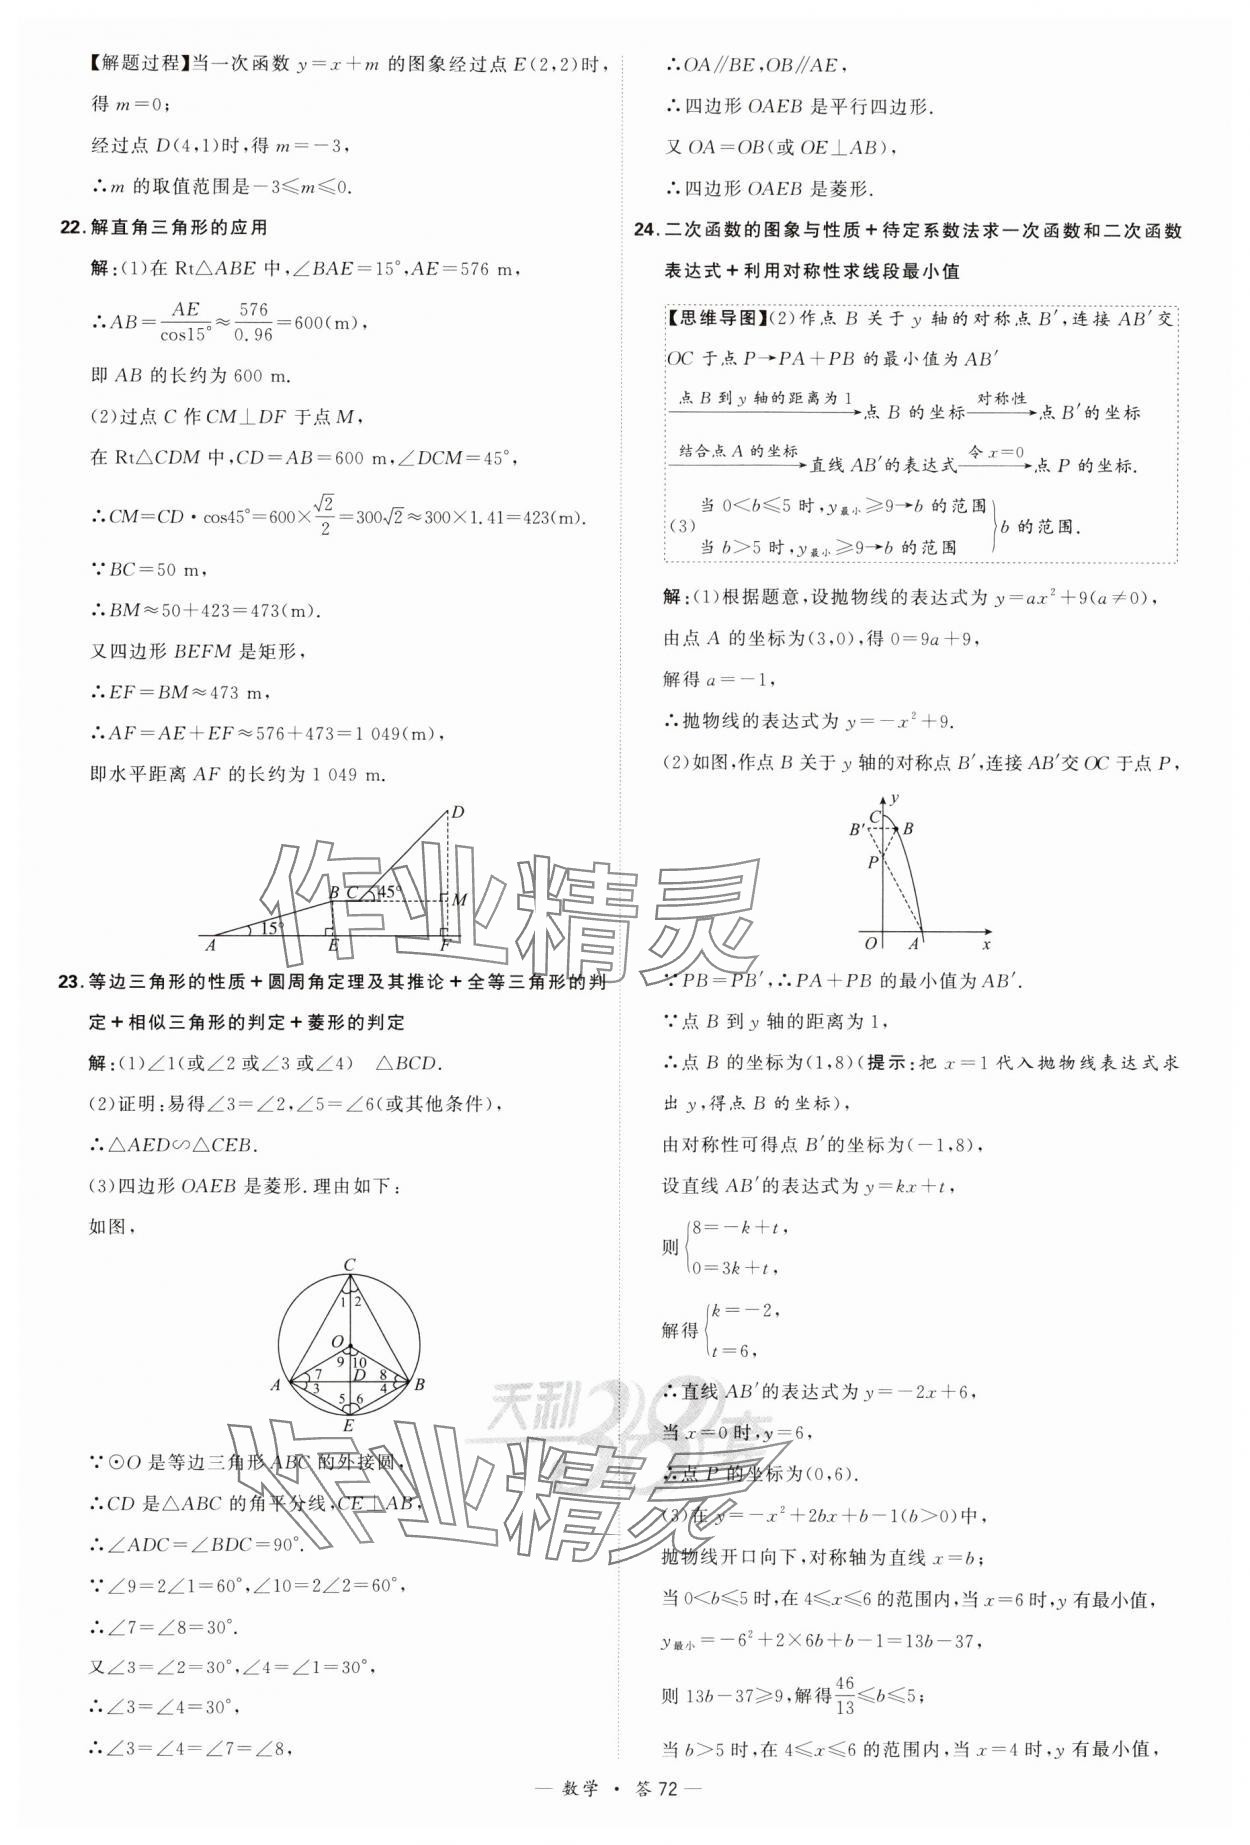 【解题过程】当一次函数 y=x+m 的图象经过点 E(2,2)时,
得 m=0;
经过点 D(4,1)时,得 m=-3,
∴m 的取值范围是-3≤m≤0.
22. 解直角三角形的应用
解:(1)在 Rt△ABE 中,∠BAE=15°,AE=576 m,
∴AB=AE/cos15°≈576/0.96=600(m),
即 AB 的长约为 600 m.
(2)过点 C 作 CM⊥DF 于点 M,
在 Rt△CDM 中,CD=AB=600 m,∠DCM=45°,
∴CM=CD·cos45°=600×√2/2=300√2≈300×1.41=423(m).
∵BC=50 m,
∴BM≈50+423=473(m).
又四边形 BEFM 是矩形,
∴EF=BM≈473 m,
∴AF=AE+EF≈576+473=1 049(m),
即水平距离 AF 的长约为 1 049 m.
D
B C 45° M
A 15° E F
23. 等边三角形的性质+圆周角定理及其推论+全等三角形的判
定+相似三角形的判定+菱形的判定
解:(1)∠1(或∠2 或∠3 或∠4) △BCD.
(2)证明:易得∠3=∠2,∠5=∠6(或其他条件),
∴△AED∽△CEB.
(3)四边形 OAEB 是菱形.理由如下:
如图,
C
1 2
O
9 10
A 7 3 D 8 4 B
5 6
E
∵⊙O 是等边三角形 ABC 的外接圆,
∴CD 是△ABC 的角平分线,CE⊥AB,
∴∠ADC=∠BDC=90°.
∵∠9=2∠1=60°,∠10=2∠2=60°,
∴∠7=∠8=30°.
又∠3=∠2=30°,∠4=∠1=30°,
∴∠3=∠4=30°,
∴∠3=∠4=∠7=∠8,
∴OA∥BE,OB∥AE,
∴四边形 OAEB 是平行四边形.
又 OA=OB(或 OE⊥AB),
∴四边形 OAEB 是菱形.
24. 二次函数的图象与性质+待定系数法求一次函数和二次函数
表达式+利用对称性求线段最小值
【思维导图】(2)作点 B 关于 y 轴的对称点 B′,连接 AB′交
OC 于点 P→PA+PB 的最小值为 AB′
点 B 到 y 轴的距离为 1→点 B 的坐标 对称性→点 B′的坐标
结合点 A 的坐标→直线 AB′的表达式 令 x=0→点 P 的坐标.
(3){当 0<b≤5 时,y最小≥9→b 的范围
当 b>5 时,y最小≥9→b 的范围}b 的范围.
解:(1)根据题意,设抛物线的表达式为 y=ax²+9(a≠0),
由点 A 的坐标为(3,0),得 0=9a+9,
解得 a=-1,
∴抛物线的表达式为 y=-x²+9.
(2)如图,作点 B 关于 y 轴的对称点 B′,连接 AB′交 OC 于点 P,
y
C
B′ B
P
O A x
∵PB=PB′,∴PA+PB 的最小值为 AB′.
∵点 B 到 y 轴的距离为 1,
∴点 B 的坐标为(1,8)(提示:把 x=1 代入抛物线表达式求
出 y,得点 B 的坐标),
由对称性可得点 B′的坐标为(-1,8),
设直线 AB′的表达式为 y=kx+t,
则{8=-k+t,
0=3k+t,
解得{k=-2,
t=6,
∴直线 AB′的表达式为 y=-2x+6,
当 x=0 时,y=6,
∴点 P 的坐标为(0,6).
(3)在 y=-x²+2bx+b-1(b>0)中,
抛物线开口向下,对称轴为直线 x=b;
当 0<b≤5 时,在 4≤x≤6 的范围内,当 x=6 时,y 有最小值,
y最小=-6²+2×6b+b-1=13b-37,
则 13b-37≥9,解得46/13≤b≤5;
当 b>5 时,在 4≤x≤6 的范围内,当 x=4 时,y 有最小值,
作业精灵
天利38套
作业精灵
— 数学 · 答 72 —